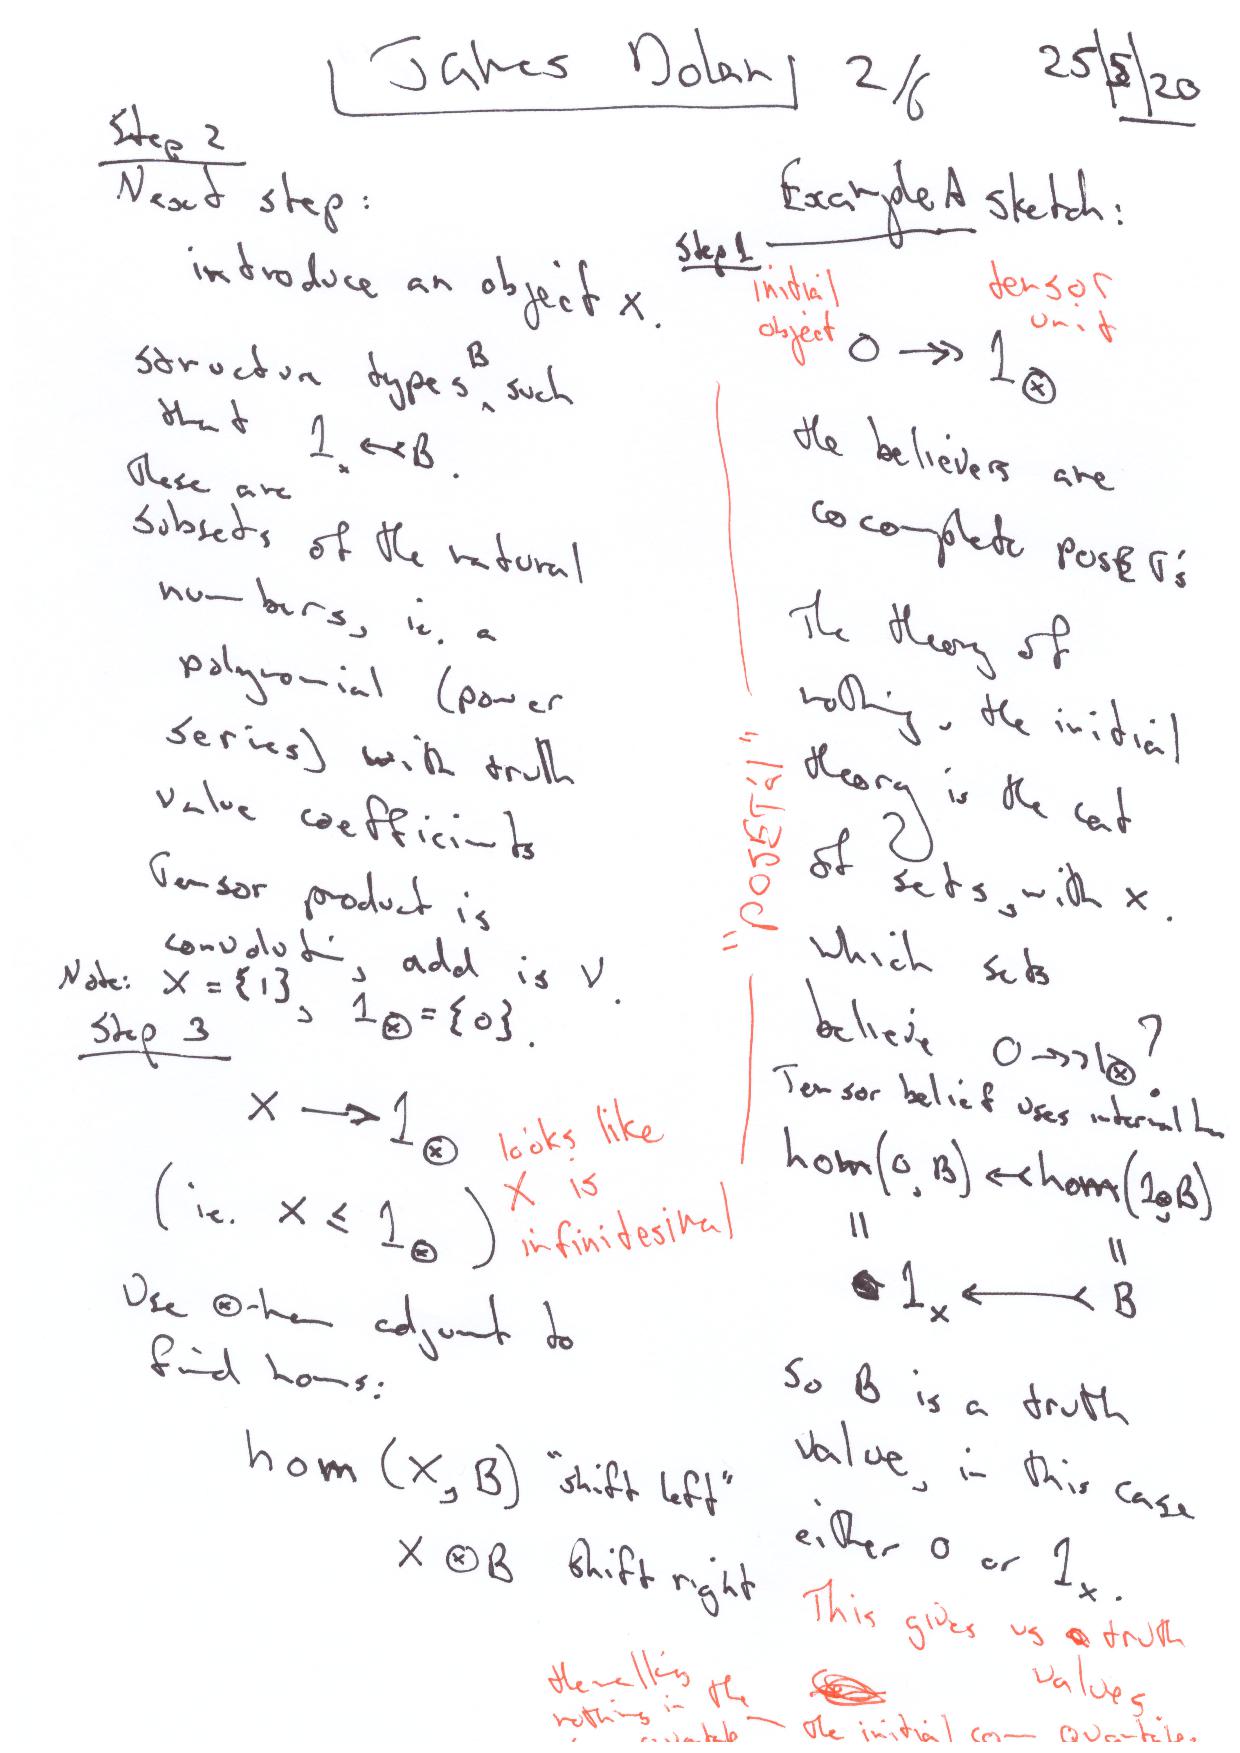 James Dolan 2/6 25/5/20
Step 2
Next step:
introduce an object x.
structure types B such
that 1ₓ ↢ B.
These are
subsets of the natural
numbers, ie. a
polynomial (power
series) with truth
value coefficients
Tensor product is
convoluti, add is ∨.
Note: X = {1}, 1⊗ = {0}.
Step 3
X → 1⊗
(ie. X ≤ 1⊗)
looks like
X is
infinitesimal
Use ⊗-hom adjunt to
find homs:
hom (X, B) "shift left"
X ⊗ B shift right
Example A sketch:
Step 1
initial
object
tensor
unit
0 ↠ 1⊗
"POSETal"
the believers are
cocomplete POSETs
The theory of
nothing, the initial
theory is the cat
of sets, with x.
Which sets
believe 0 ↠ 1⊗?
Tensor belief uses internal hom
hom(0, B) ↢ hom(1⊗, B)
= =
1ₓ ↢ B
So B is a truth
value, in this case
either 0 or 1ₓ.
This gives us truth
values
the initial com quantale.
nothing in the